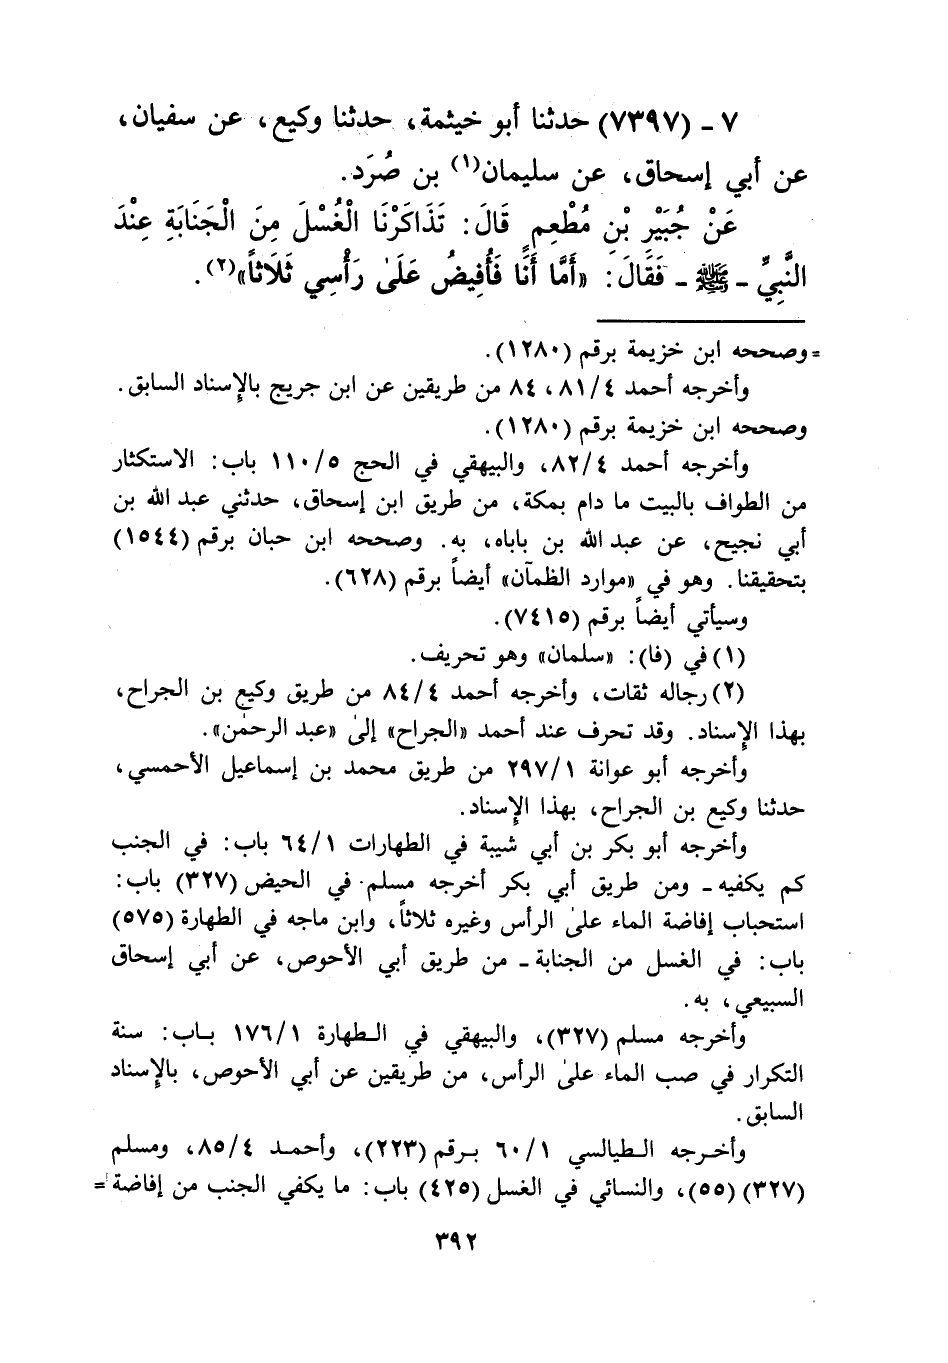 ٧ ـ (٧٣٩٧) حدثنا أبو خيثمة، حدثنا وكيع، عن سفيان،
عن أبي إسحاق، عن سليمان(١) بن صُرَد.
عَنْ جُبَيْرِ بْنِ مُطْعِمٍ قَالَ: تَذَاكَرْنَا الْغُسْلَ مِنَ الْجَنَابَةِ عِنْدَ
النَّبِيِّ ـ ﷺ ـ فَقَالَ: «أَمَّا أَنَا فَأُفِيضُ عَلَىٰ رَأْسِي ثَلَاثاً»(٢).
= وصححه ابن خزيمة برقم (١٢٨٠).
وأخرجه أحمد ٨١/٤، ٨٤ من طريقين عن ابن جريج بالإسناد السابق.
وصححه ابن خزيمة برقم (١٢٨٠).
وأخرجه أحمد ٨٢/٤، والبيهقي في الحج ١١٠/٥ باب: الاستكثار
من الطواف بالبيت ما دام بمكة، من طريق ابن إسحاق، حدثني عبد الله بن
أبي نجيح، عن عبد الله بن باباه، به. وصححه ابن حبان برقم (١٥٤٤)
بتحقيقنا. وهو في «موارد الظمآن» أيضاً برقم (٦٢٨).
وسيأتي أيضاً برقم (٧٤١٥).
(١) في (فا): «سلمان» وهو تحريف.
(٢) رجاله ثقات، وأخرجه أحمد ٨٤/٤ من طريق وكيع بن الجراح،
بهذا الإسناد. وقد تحرف عند أحمد «الجراح» إلىٰ «عبد الرحمٰن».
وأخرجه أبو عوانة ٢٩٧/١ من طريق محمد بن إسماعيل الأحمسي،
حدثنا وكيع بن الجراح، بهذا الإسناد.
وأخرجه أبو بكر بن أبي شيبة في الطهارات ٦٤/١ باب: في الجنب
كم يكفيه ـ ومن طريق أبي بكر أخرجه مسلم في الحيض (٣٢٧) باب:
استحباب إفاضة الماء علىٰ الرأس وغيره ثلاثاً، وابن ماجه في الطهارة (٥٧٥)
باب: في الغسل من الجنابة ـ من طريق أبي الأحوص، عن أبي إسحاق
السبيعي، به.
وأخرجه مسلم (٣٢٧)، والبيهقي في الطهارة ١٧٦/١ باب: سنة
التكرار في صب الماء علىٰ الرأس، من طريقين عن أبي الأحوص، بالإسناد
السابق.
وأخرجه الطيالسي ٦٠/١ برقم (٢٢٣)، وأحمد ٨٥/٤، ومسلم
(٣٢٧) (٥٥)، والنسائي في الغسل (٤٢٥) باب: ما يكفي الجنب من إفاضة =
٣٩٢